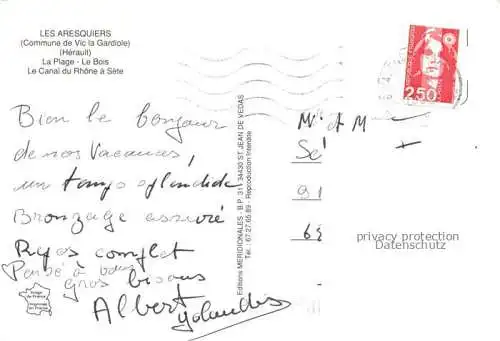 LES ARESQUIERS
(Commune de Vic la Gardiole)
(Hérault)
La Plage - Le Bois
Le Canal du Rhône à Sète
Bien le bonjour
de nos Vacances,
un temps splendide
Bronzage assuré
Repos complet
Pensé à vous
gros bisous
Albert
Yolande
Editions MERIDIONALES - B.P. 311 34430 ST JEAN DE VEDAS
Tél. : 67.27.65.89 - Reproduction Interdite
2,50
Mr et M
Sé
91
privacy protection
Datenschutz